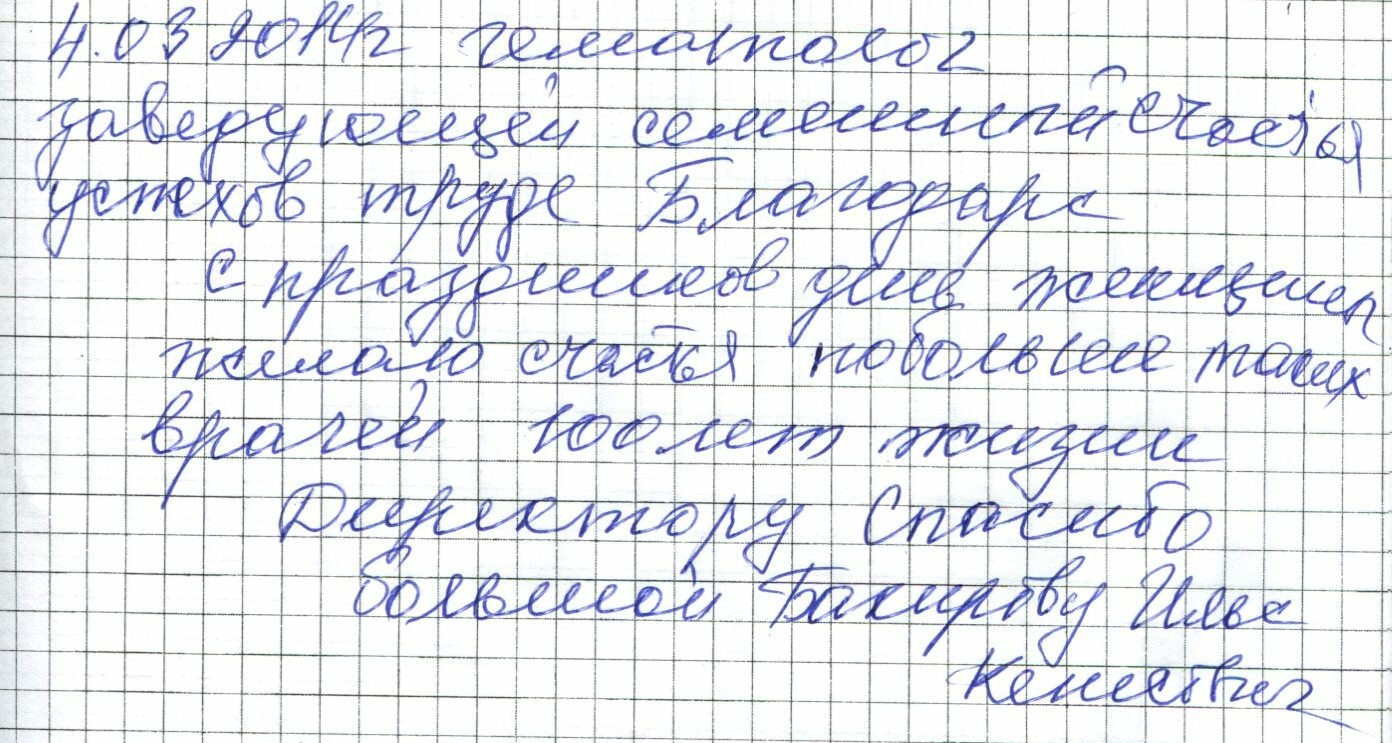 4.03 2014г гематолог
заведующей семейный счастья
успехов труде Благодарс
с праздников день женщины
желаю счастья побольше таких
врачей 100 лет жизни
Директору Спасибо
большой Бакирову